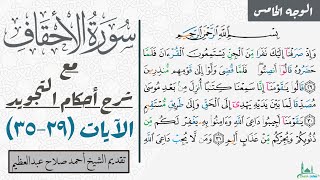 الوجه الخامس
بِسْمِ اللَّهِ الرَّحْمَٰنِ الرَّحِيمِ
وَإِذْ صَرَفْنَا إِلَيْكَ نَفَرًا مِّنَ الْجِنِّ يَسْتَمِعُونَ الْقُرْءَانَ فَلَمَّا
حَضَرُوهُ قَالُوا أَنصِتُوا فَلَمَّا قُضِيَ وَلَّوْا إِلَىٰ قَوْمِهِم مُّنذِرِينَ
٢٩ قَالُوا يَٰقَوْمَنَا إِنَّا سَمِعْنَا كِتَٰبًا أُنزِلَ مِن بَعْدِ مُوسَىٰ
مُصَدِّقًا لِّمَا بَيْنَ يَدَيْهِ يَهْدِي إِلَى الْحَقِّ وَإِلَىٰ طَرِيقٍ مُّسْتَقِيمٍ
٣٠ يَٰقَوْمَنَا أَجِيبُوا دَاعِيَ اللَّهِ وَءَامِنُوا بِهِ يَغْفِرْ لَكُم مِّن
ذُنُوبِكُمْ وَيُجِرْكُم مِّنْ عَذَابٍ أَلِيمٍ ٣١ وَمَن لَّا يُجِبْ دَاعِيَ
سورة الأحقاف
مع
شرح أحكام التجويد
الآيات (٢٩-٣٥)
تقديم الشيخ أحمد صلاح عبدالعظيم